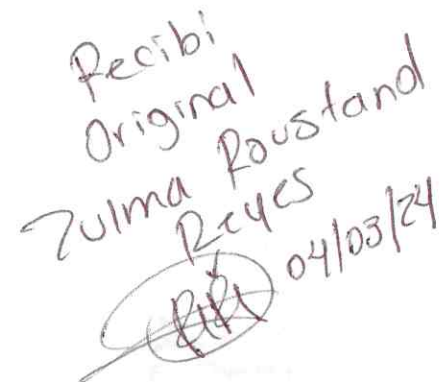 Recibi
Original
Zulma Roustand
Reyes
04/03/24